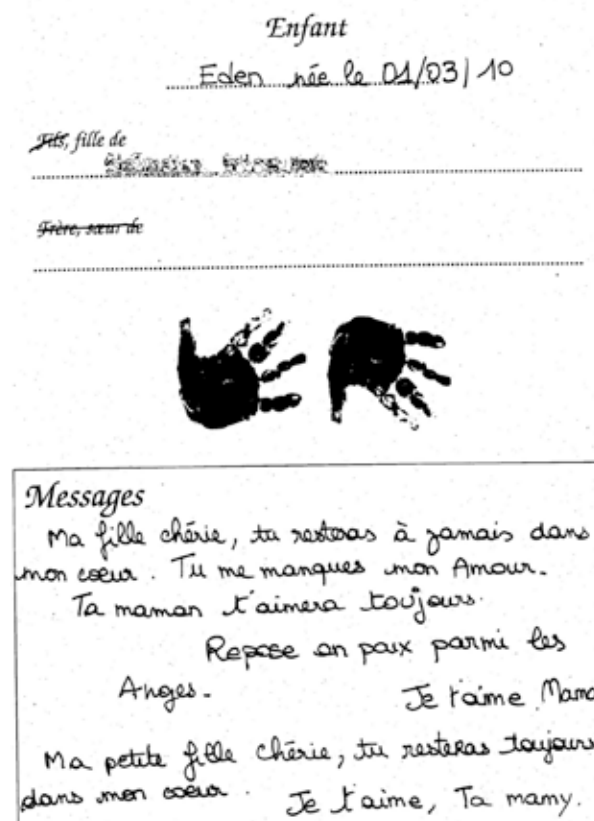 Enfant
Eden née le 01/03/10
Fils, fille de
Frère, sœur de
Messages
Ma fille chérie, tu resteras à jamais dans
mon coeur. Tu me manques mon Amour.
Ta maman t'aimera toujours.
Repose en paix parmi les
Anges. Je t'aime Mama
Ma petite fille chérie, tu resteras toujours
dans mon coeur. Je t'aime, Ta mamy.